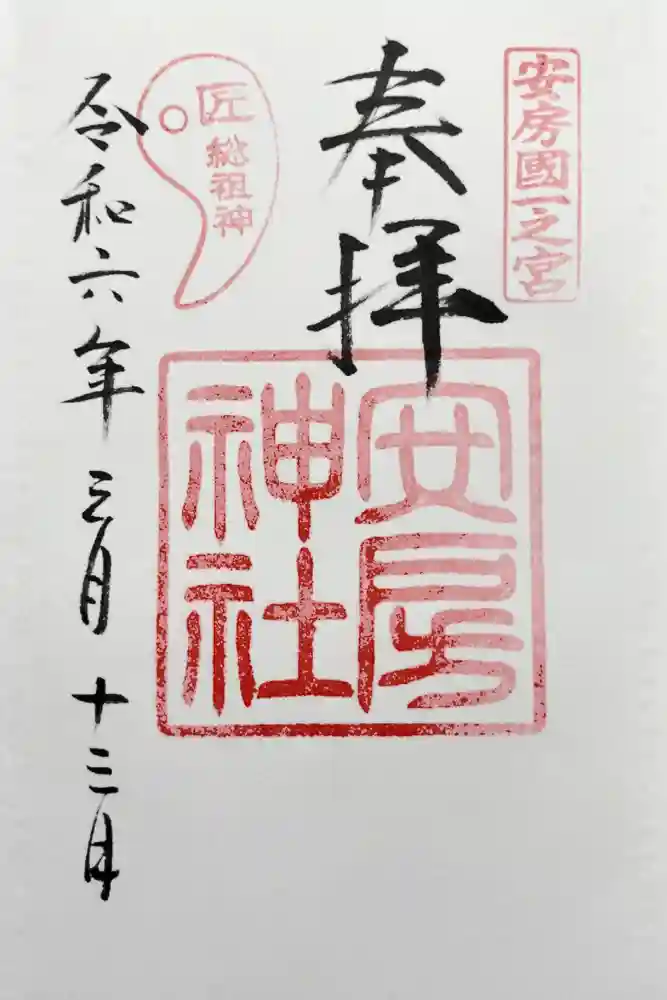 安房國一之宮
奉拝
安房
神社
匠
総祖神
令和六年三月十三日